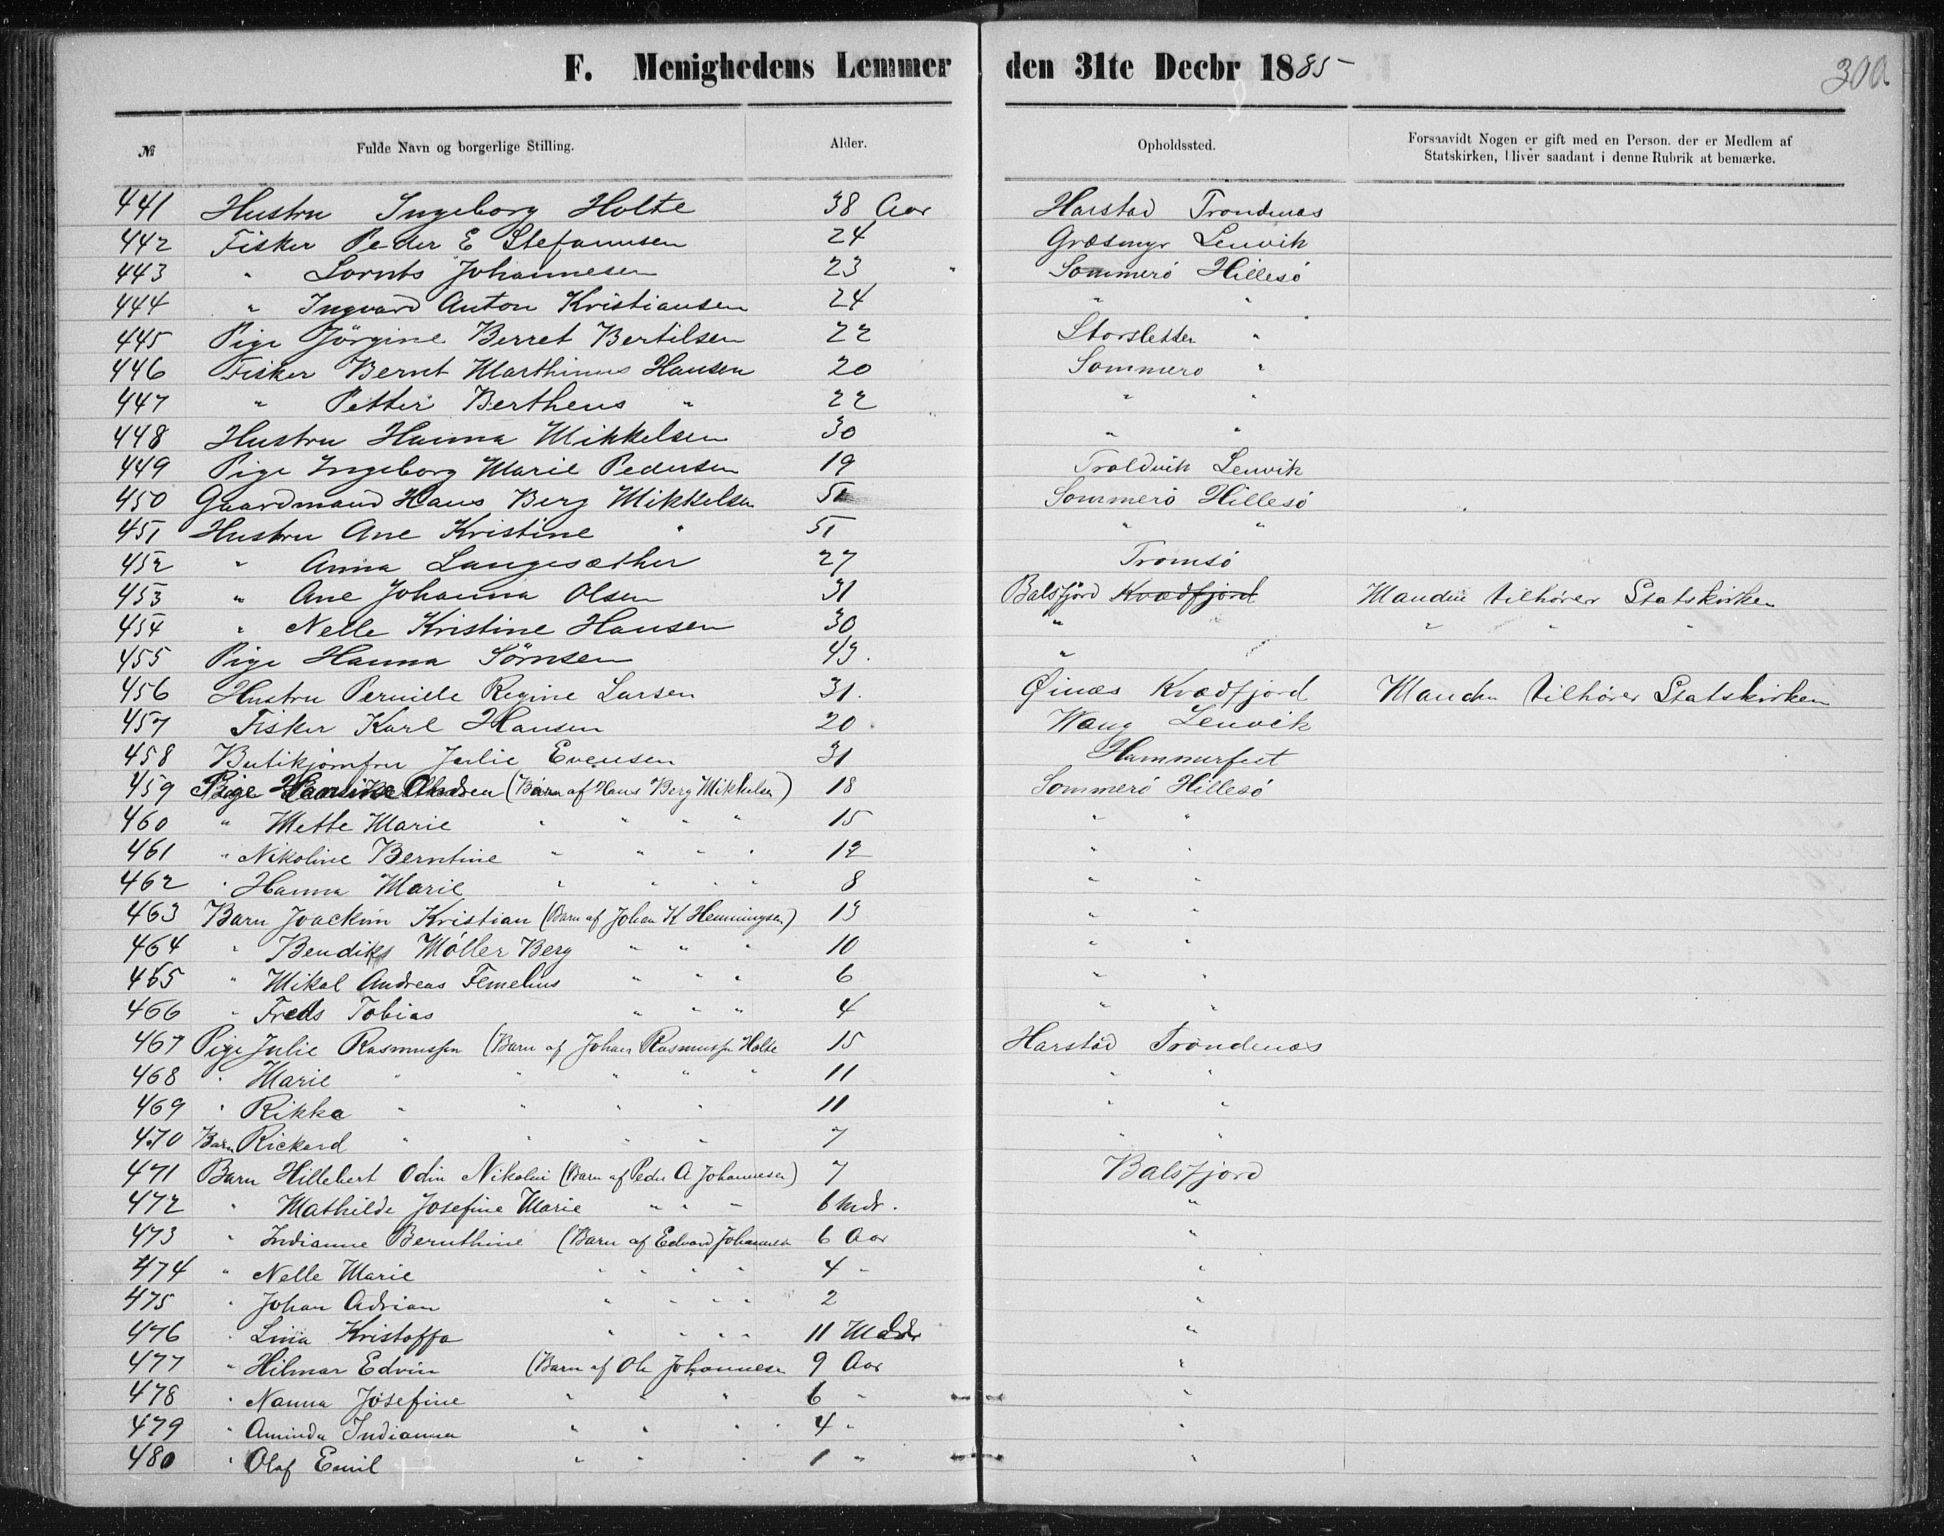 F. Menighedens Lemmer den 31te Decbr 1885 -
300.
№ Fulde Navn og borgerlige Stilling. Alder. Opholdssted. Forsaavidt Nogen er gift med en Person, der er Medlem af Statskirken, bliver saadant i denne Rubrik at bemærke.
441 Hustru Ingeborg Holte 38 Aar Harstad Trondenæs
442 Fisker Peder E Stefanusen 24 Græsmyr Lenvik
443 " Lornts Johannesen 23 " Sommerö Hillesö
444 " Ingvard Anton Kristiansen 24 " "
445 Pige Jörgine Berret Bertilsen 22 Storsletten "
446 Fisker Bernt Marthinus Hansen 20 Sommerö "
447 " Petter Bertheus " 22 " "
448 Hustru Hanna Mikkelsen 30 " "
449 Pige Ingeborg Marie Pedersen 19 Troldvik Lenvik
450 Gaardmand Hans Berg Mikkelsen 51 Sommerö Hillesö
451 Hustru Ane Kristine " 51 " "
452 " Anna Langesæther 27 Tromsö
453 " Ane Johanna Olsen 31 Balsfjörd Kvædfjord Manden tilhörer Statskirken
454 " Nelle Kristine Hansen 30 " " " " "
455 Pige Hanna Sörnsen 43. "
456 Hustru Pernille Regine Larsen 31. Öinæs Kvædfjord Manden tilhörer Statskirken
457 Fisker Karl Hansen 20. Wang Lenvik
458 Butikjomfru Julie Evensen 31 Hammerfest
459 Pige (Barn af Hans Berg Mikkelsen) 18 Sommerö Hillesö
460 " Mette Marie " " " " 15 " "
461 " Nikoline Berntine " " " " 12 " "
462 " Hanna Marie " " " " 8 " "
463 Barn Joackim Kristian (Barn af Johan K Henningsen) 13 " "
464 " Bendiks Möller Berg " " " 10 " "
465 " Mikal Andreas Femelius " " " 6 " "
466 " Freds Tobias " " " 4 " "
467 Pige Julie Rasmussen (Barn af Johan Rasmussen Holte 15 Harstad Trondenæs
468 " Marie " " " " " 11 " "
469 " Rikka " " " " 11 " "
470 Barn Rickard " " " " 7 " "
471 Barn Hillebert Odin Nikolai (Barn af Peder A Johannesen) 7 Balsfjord
472 " Mathilde Josefine Marie " " " 6 Mdr. "
473 " Indianne Bernthine (Barn af Edvard Johannesen 6 Aar "
474 " Nelle Marie " " " " 4 " "
475 " Johan Adrian " " " " 2 "
476 " Lina Kristoffa " " " " 11 Mdr "
477 " Hilmar Edvin (Barn af Ole Johannesen 9 Aar "
478 " Nanna Josefine " " " 6 " "
479 " Aminda Indianna " " " 4 " "
480 " Olaf Emil " " " 1 " "